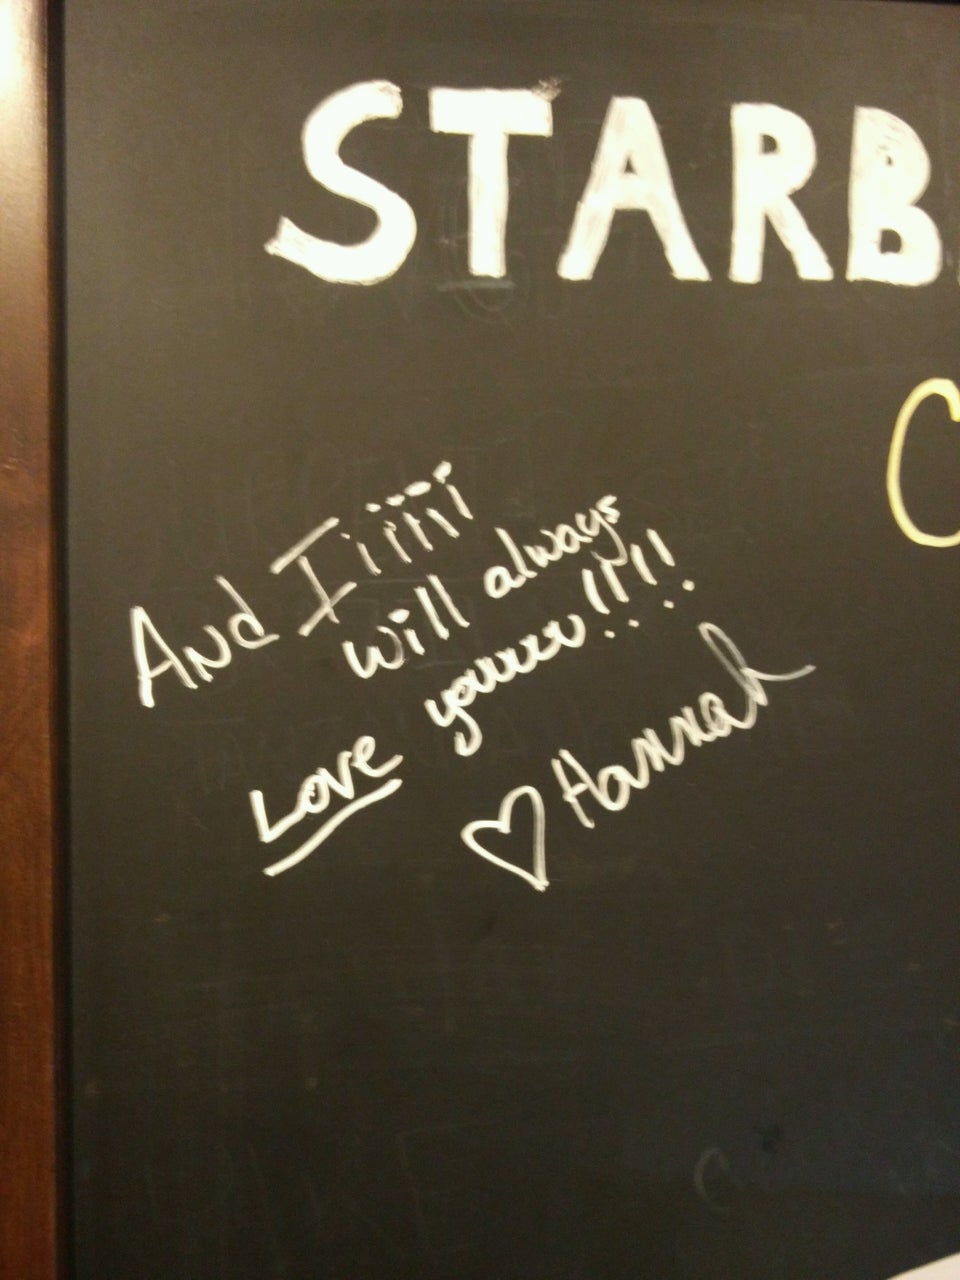 STARB
C
And Iiiiii
will always
Love youuuu!!!!
♡ Hannah